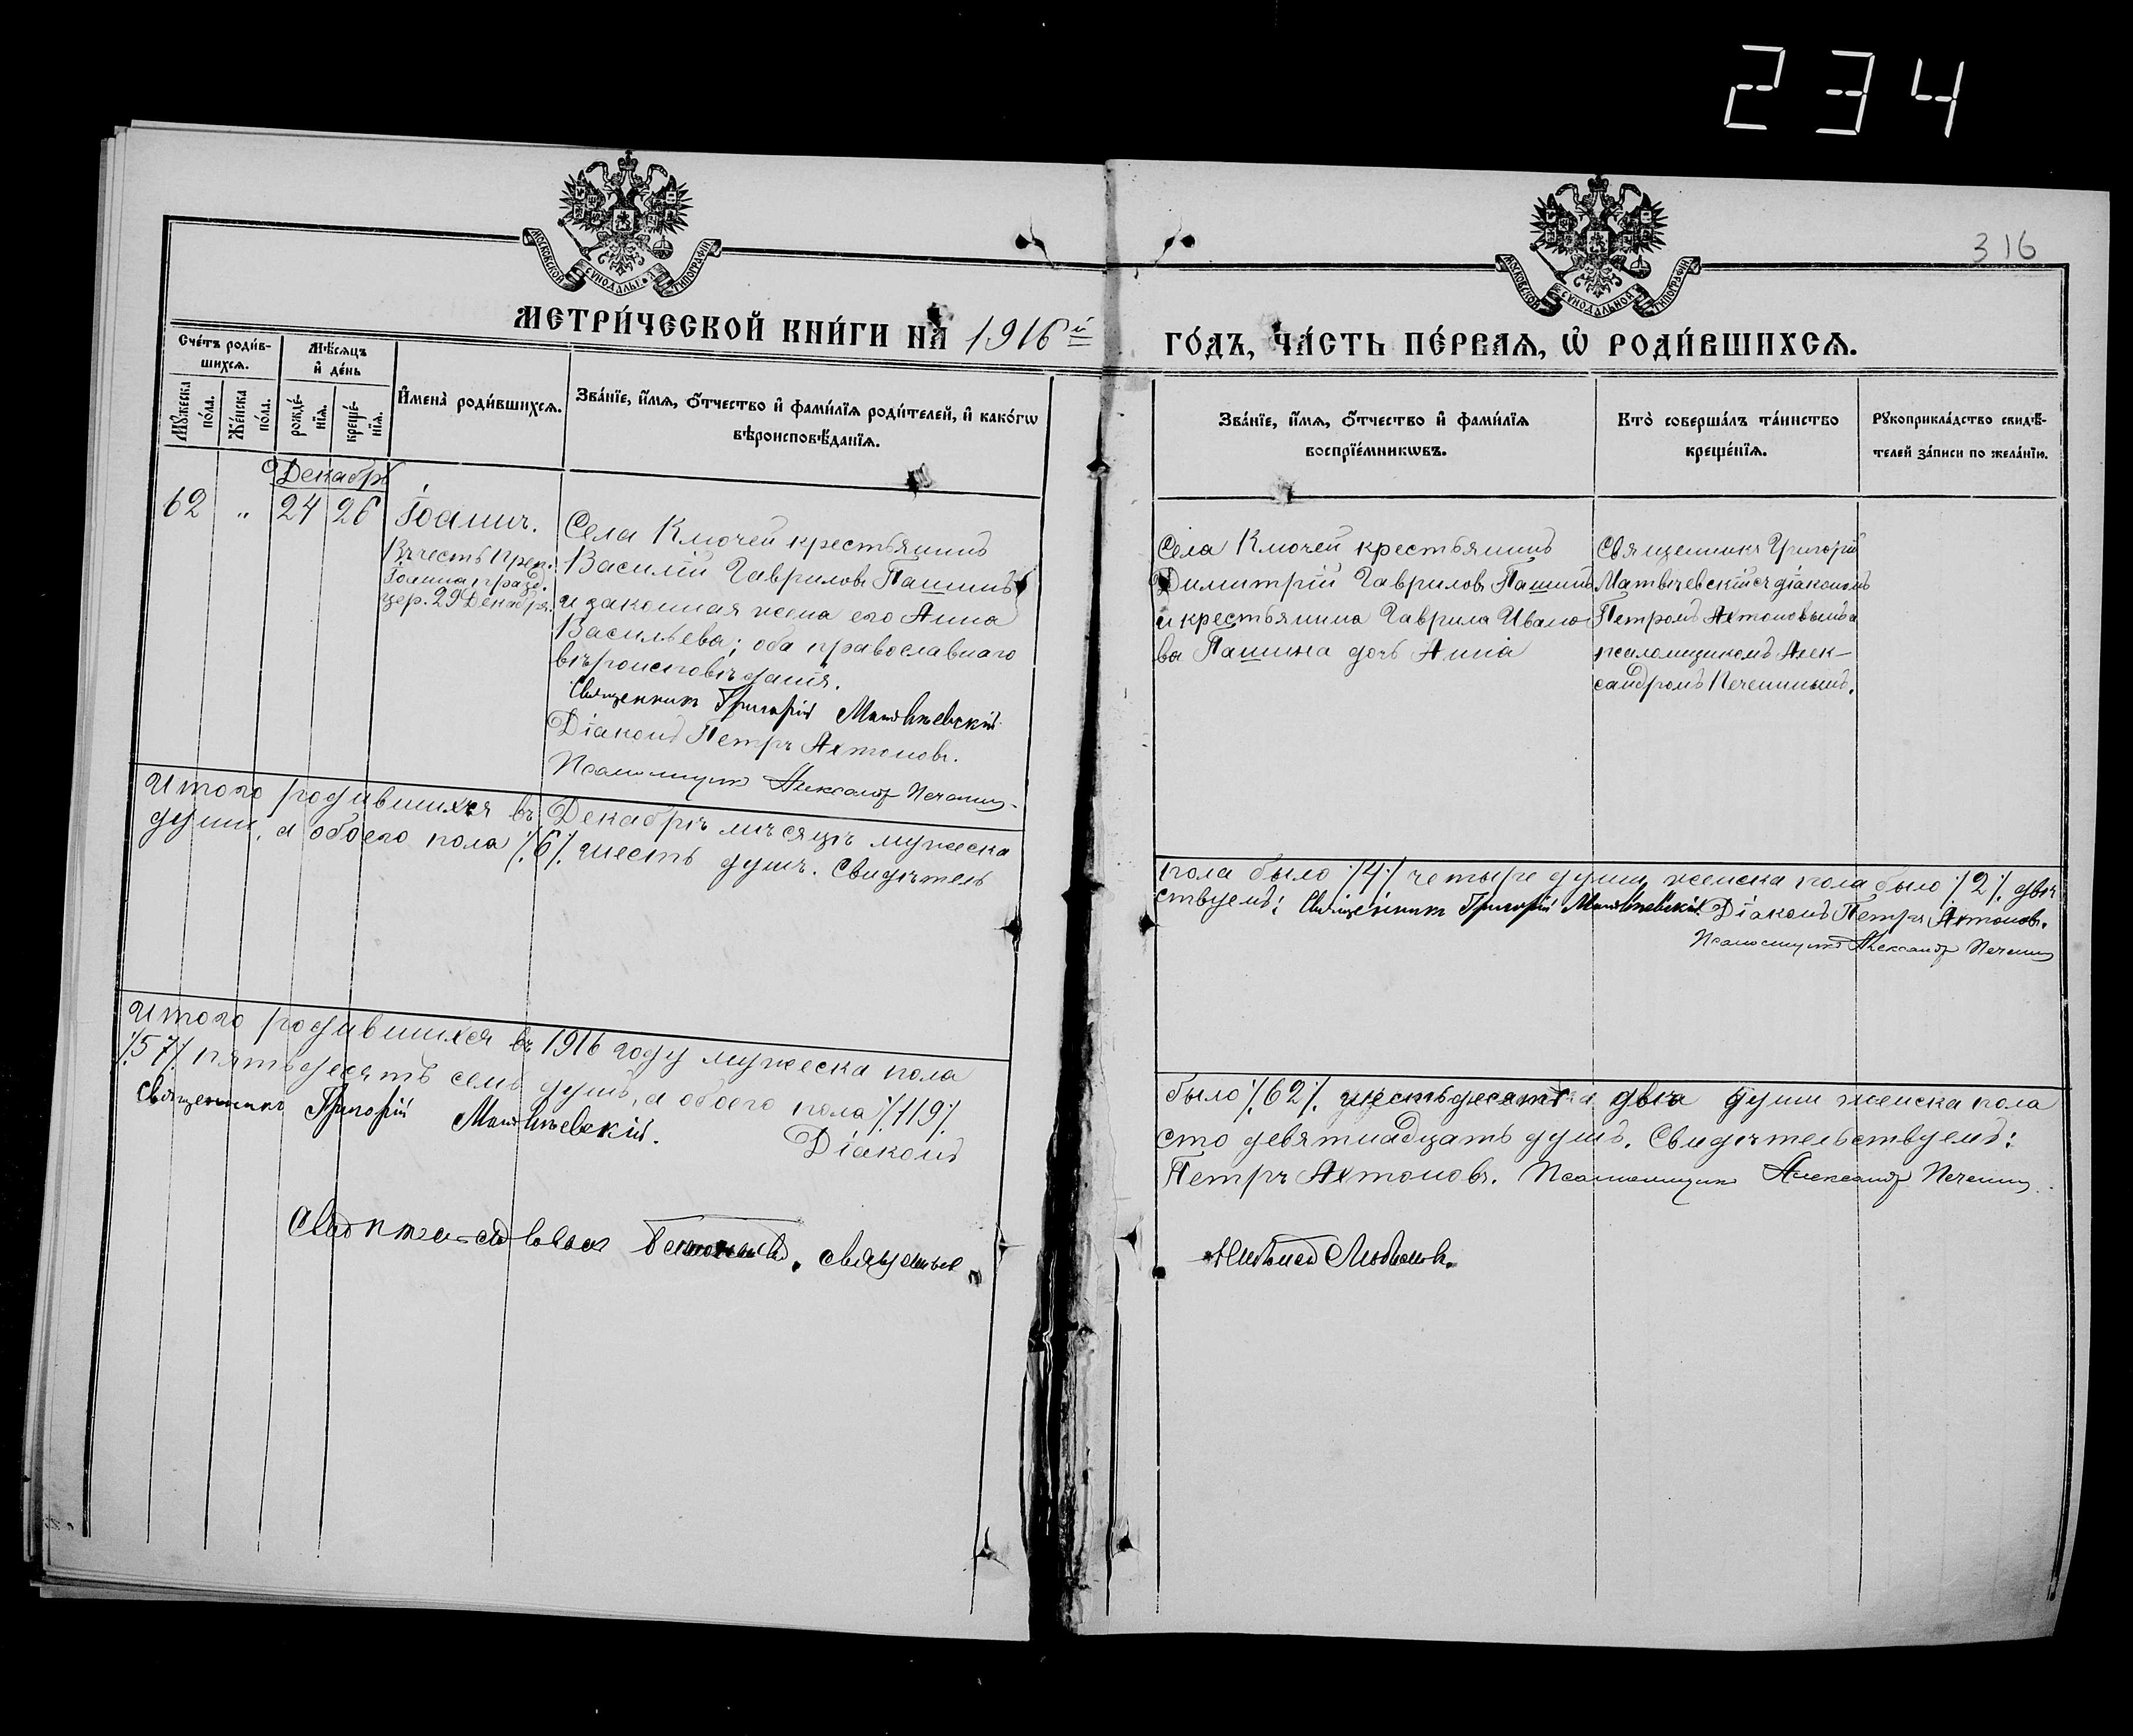 234
316
МОСКОВСКОЙ СѴНОДАЛЬНОЙ ТИПОГРАФІИ
МОСКОВСКОЙ СѴНОДАЛЬНОЙ ТИПОГРАФІИ
МЕТРИ́ЧЕСКОЙ КНИ́ГИ НА̀ 1916й
ГО́ДЪ, ЧА́СТЬ ПЕ́РВАѦ, Ѡ҆ РОДИ́ВШИХСѦ.
Сче́тъ роди́в-
шихсѧ.
Мѣ́сѧцъ
и҆ де́нь
Мꙋ́жеска
по́ла.
Же́нска
по́ла.
рожде́-
нїѧ.
креще́-
нїѧ.
И҆мена̀ роди́вшихсѧ.
Зва́нїе, и҆́мѧ, ѻ҆́тчество и҆ фами́лїѧ роди́телей, и҆ како́гѡ
вѣроисповѣ́данїѧ.
Зва́нїе, и҆́мѧ, ѻ҆́тчество и҆ фами́лїѧ
воспрїе́мникѡвъ.
Кто̀ соверша́лъ та́инство
креще́нїѧ.
Рꙋкоприкла́дство свидѣ́-
телей за́писи по жела́нїю.
Декабрь
62 " 24 26 Іоаннъ.
Въ честь Преп.
Іоанна, празд.
цер. 29 Декабря.
Села Ключей крестьянинъ
Василій Гавриловъ Пашинъ
и законная жена его Анна
Васильева; оба православнаго
вѣроисповѣданія.
Священникъ Григорій Матвѣевскій
Діаконъ Петръ Ахтоновъ.
Псаломщикъ Александр Печенин
Села Ключей крестьянинъ
Димитрій Гавриловъ Пашинъ
и крестьянина Гаврила Ивано-
ва Пашина дочь Анна
Священникъ Григорій
Матвѣевскій съ діакономъ
Петромъ Ахтоновымъ и
псаломщикомъ Алек-
сандромъ Печенинымъ.
Итого родившихся въ Декабрѣ мѣсяцѣ мужеска
пола было ٪4٪ четыре души, женска пола было ٪2٪ двѣ
души, а обоего пола ٪6٪ шесть душъ. Свидѣтель
ствуемъ: Священникъ Григорій Матвѣевскій. Діаконъ Петръ Ахтоновъ.
Псаломщикъ Александр Печенин
Итого родившихся въ 1916 году мужеска пола
было ٪62٪ шестьдесятъ двѣ души женска пола
٪57٪ пятьдесятъ семь душъ, а обоего пола ٪119٪
сто девятнадцать душъ. Свидѣтельствуемъ:
Священникъ Григорій Матвѣевскій. Діаконъ
Петръ Ахтоновъ. Псаломщикъ Александр Печенин